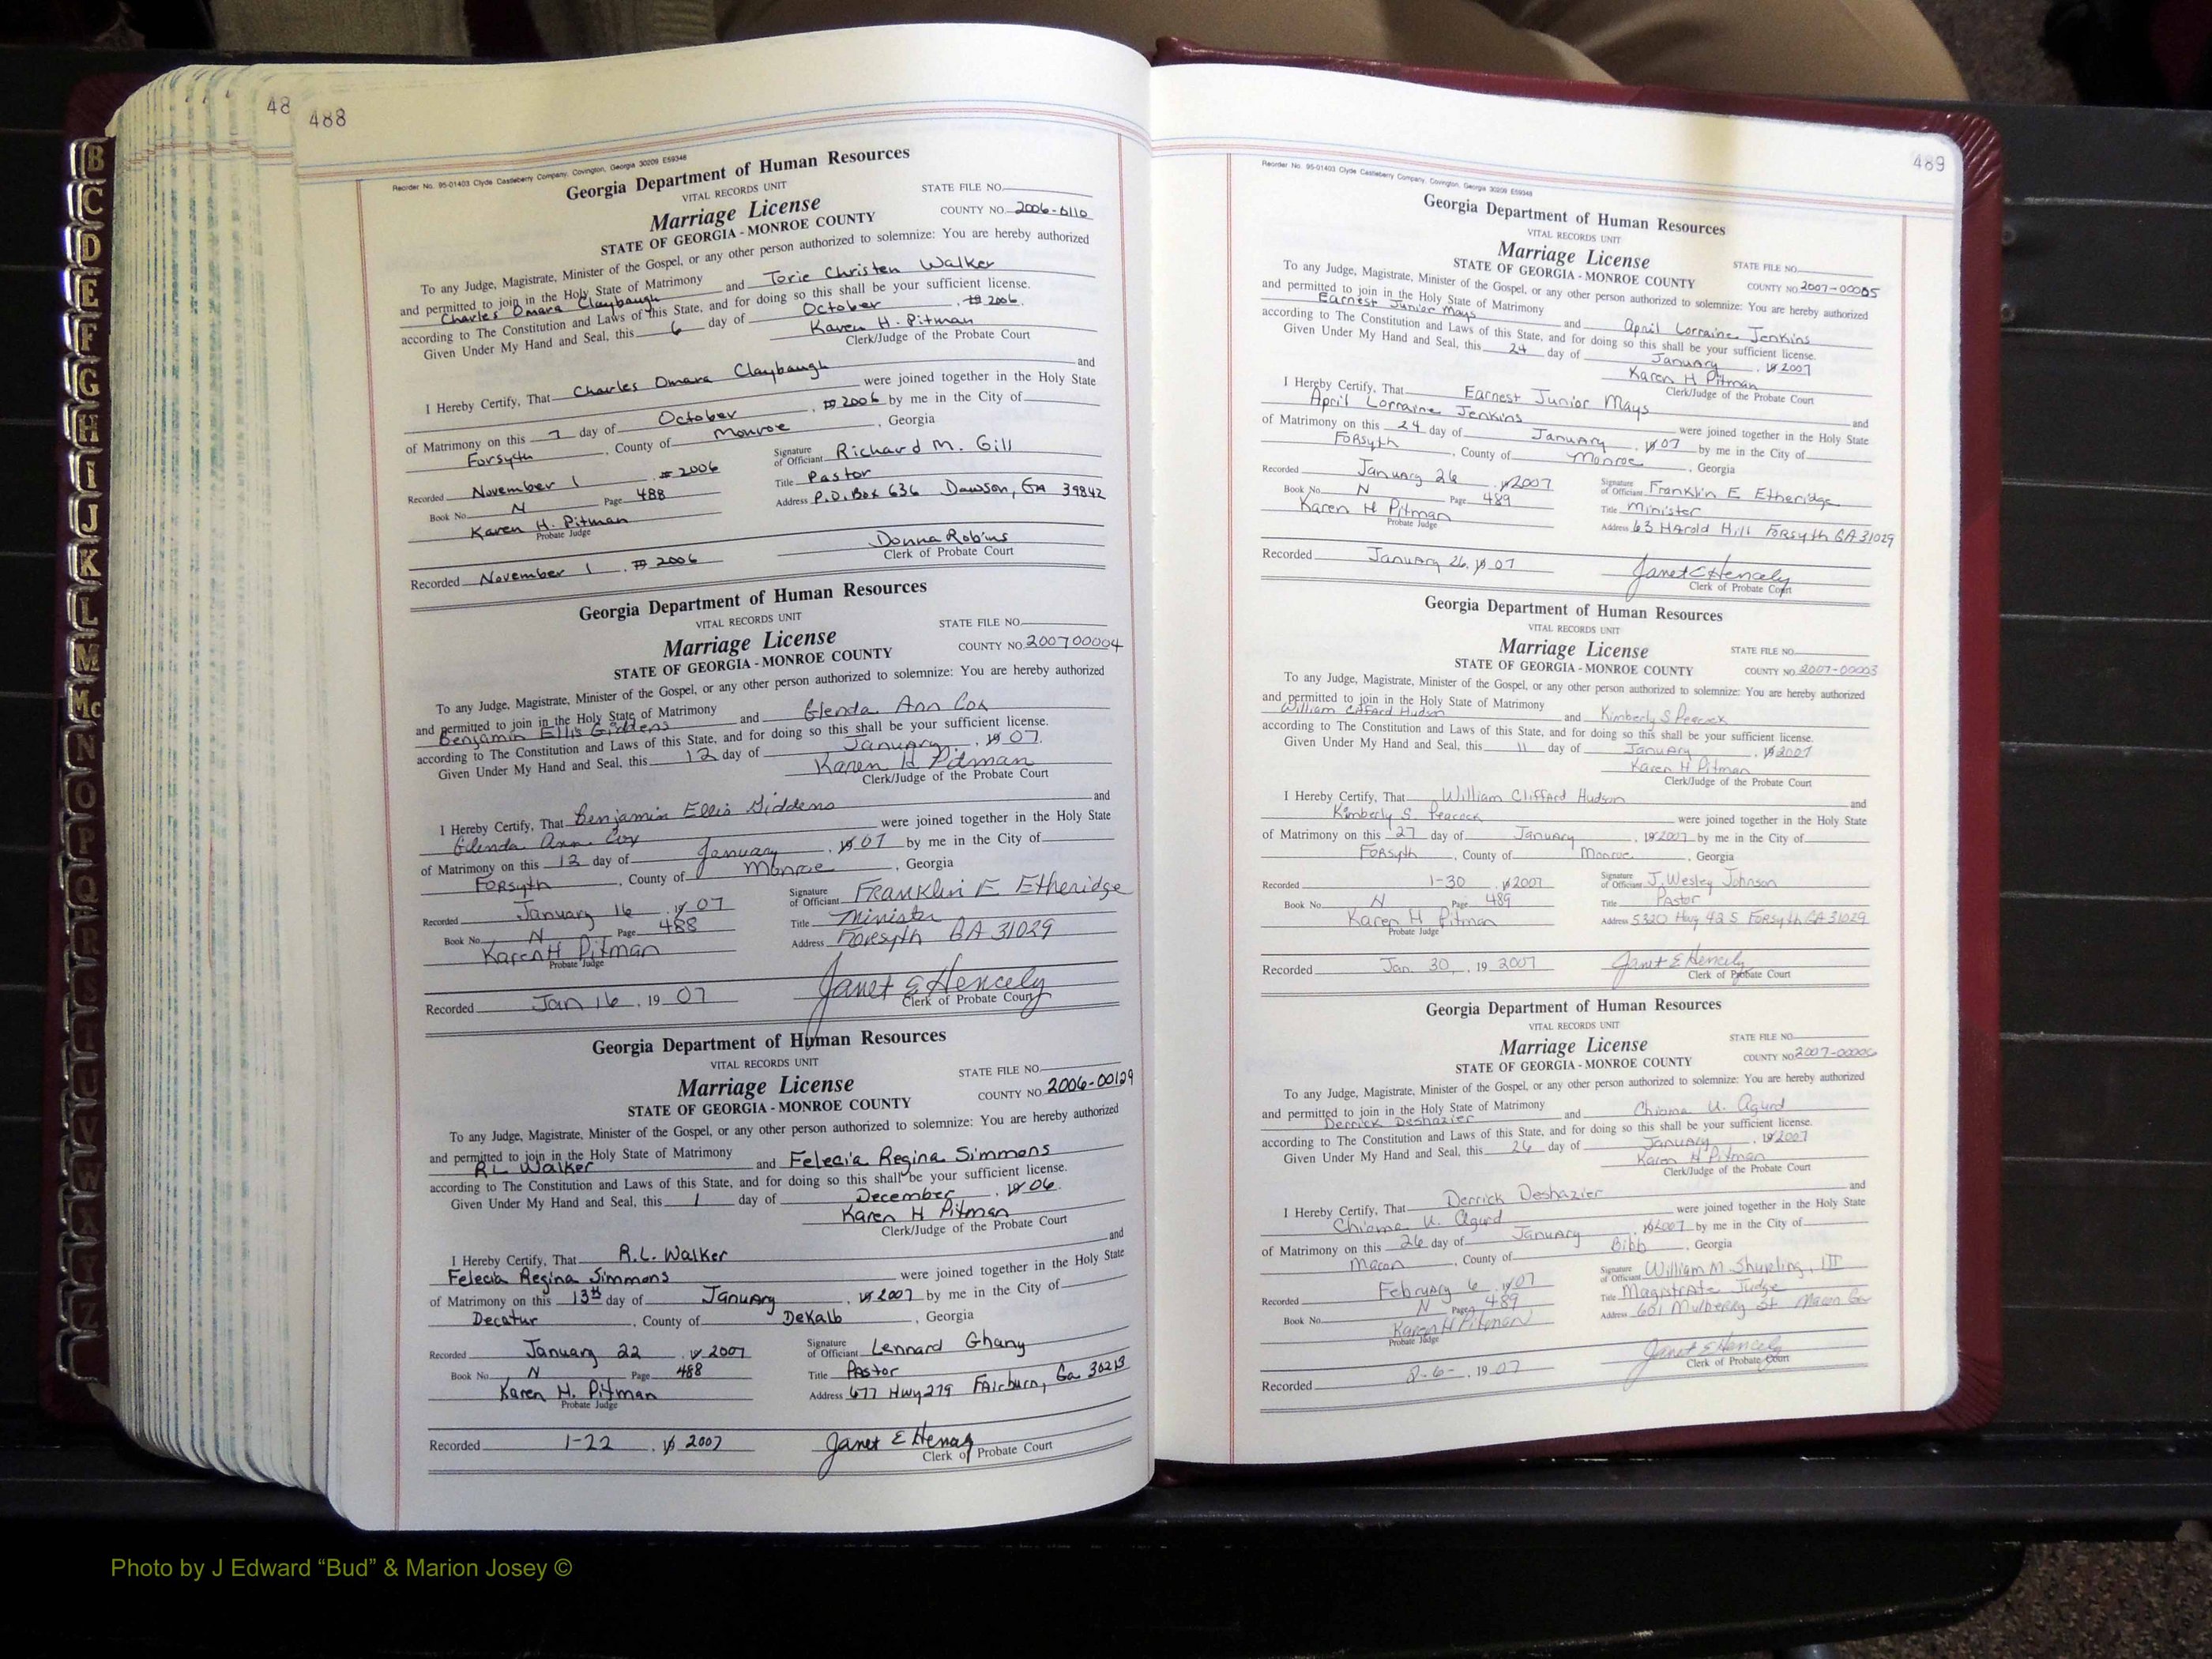 48
488
B
C
D
E
F
G
H
I
J
K
L
M
Mc
N
O
P
Q
R
S
T
U
V
W
X
Y
Z
Reorder No. 95-01403 Clyde Castleberry Company, Covington, Georgia 30209 E59348
Georgia Department of Human Resources
VITAL RECORDS UNIT
STATE FILE NO.
Marriage License
COUNTY NO. 2006-0110
STATE OF GEORGIA - MONROE COUNTY
To any Judge, Magistrate, Minister of the Gospel, or any other person authorized to solemnize: You are hereby authorized
and permitted to join in the Holy State of Matrimony
Charles Omara Claybaugh and Torie Christen Walker
according to The Constitution and Laws of this State, and for doing so this shall be your sufficient license.
Given Under My Hand and Seal, this 6 day of October, 19 2006.
Karen H. Pitman
Clerk/Judge of the Probate Court
I Hereby Certify, That Charles Omara Claybaugh and
were joined together in the Holy State
of Matrimony on this 7 day of October, 19 2006 by me in the City of
Forsyth, County of Monroe, Georgia
Recorded November 1, 19 2006 Signature of Officiant Richard M. Gill
Book No. N Page 488 Title Pastor
Karen H. Pitman Address P.O. Box 636 Dawson, GA 39842
Probate Judge
Donna Robins
Recorded November 1, 19 2006 Clerk of Probate Court
Georgia Department of Human Resources
VITAL RECORDS UNIT
STATE FILE NO.
Marriage License
COUNTY NO. 200700004
STATE OF GEORGIA - MONROE COUNTY
To any Judge, Magistrate, Minister of the Gospel, or any other person authorized to solemnize: You are hereby authorized
and permitted to join in the Holy State of Matrimony
Benjamin Ellis Giddens and Glenda Ann Cox
according to The Constitution and Laws of this State, and for doing so this shall be your sufficient license.
Given Under My Hand and Seal, this 12 day of January, 19 07.
Karen H Pitman
Clerk/Judge of the Probate Court
I Hereby Certify, That Benjamin Ellis Giddens and
Glenda Ann Cox were joined together in the Holy State
of Matrimony on this 12 day of January, 19 07 by me in the City of
Forsyth, County of Monroe, Georgia
Recorded January 16, 19 07 Signature of Officiant Franklin E Etheridge
Book No. N Page 488 Title Minister
Karen H Pitman Address Forsyth GA 31029
Probate Judge
Janet E Hencely
Recorded Jan 16, 19 07 Clerk of Probate Court
Georgia Department of Human Resources
VITAL RECORDS UNIT
STATE FILE NO.
Marriage License
COUNTY NO. 2006-00129
STATE OF GEORGIA - MONROE COUNTY
To any Judge, Magistrate, Minister of the Gospel, or any other person authorized to solemnize: You are hereby authorized
and permitted to join in the Holy State of Matrimony
RL Walker and Felecia Regina Simmons
according to The Constitution and Laws of this State, and for doing so this shall be your sufficient license.
Given Under My Hand and Seal, this 1 day of December, 19 06.
Karen H Pitman
Clerk/Judge of the Probate Court
I Hereby Certify, That R.L. Walker and
Felecia Regina Simmons were joined together in the Holy State
of Matrimony on this 13th day of January, 19 2007 by me in the City of
Decatur, County of DeKalb, Georgia
Recorded January 22, 19 2007 Signature of Officiant Lennard Ghany
Book No. N Page 488 Title Pastor
Karen H. Pitman Address 677 Hwy 279 Fairburn, Ga 30213
Probate Judge
Janet E Hencely
Recorded 1-22, 19 2007 Clerk of Probate Court
489
Reorder No. 95-01403 Clyde Castleberry Company, Covington, Georgia 30209 E59348
Georgia Department of Human Resources
VITAL RECORDS UNIT
Marriage License
STATE FILE NO.
STATE OF GEORGIA - MONROE COUNTY
COUNTY NO. 2007-00005
To any Judge, Magistrate, Minister of the Gospel, or any other person authorized to solemnize: You are hereby authorized
and permitted to join in the Holy State of Matrimony
Earnest Junior Mays and April Lorraine Jenkins
according to The Constitution and Laws of this State, and for doing so this shall be your sufficient license.
Given Under My Hand and Seal, this 24 day of January, 19 2007
Karen H Pitman
Clerk/Judge of the Probate Court
I Hereby Certify, That Earnest Junior Mays and
April Lorraine Jenkins were joined together in the Holy State
of Matrimony on this 24 day of January, 19 07 by me in the City of
Forsyth, County of Monroe, Georgia
Recorded January 26, 19 2007 Signature of Officiant Franklin E Etheridge
Book No. N Page 489 Title Minister
Karen H Pitman Address 63 Harold Hill Forsyth GA 31029
Probate Judge
Janet E Hencely
Recorded January 26, 19 07 Clerk of Probate Court
Georgia Department of Human Resources
VITAL RECORDS UNIT
Marriage License
STATE FILE NO.
STATE OF GEORGIA - MONROE COUNTY
COUNTY NO. 2007-00003
To any Judge, Magistrate, Minister of the Gospel, or any other person authorized to solemnize: You are hereby authorized
and permitted to join in the Holy State of Matrimony
William Clifford Hudson and Kimberly S Peacock
according to The Constitution and Laws of this State, and for doing so this shall be your sufficient license.
Given Under My Hand and Seal, this 11 day of January, 19 2007
Karen H Pitman
Clerk/Judge of the Probate Court
I Hereby Certify, That William Clifford Hudson and
Kimberly S. Peacock were joined together in the Holy State
of Matrimony on this 27 day of January, 19 2007 by me in the City of
Forsyth, County of Monroe, Georgia
Recorded 1-30, 19 2007 Signature of Officiant J. Wesley Johnson
Book No. N Page 489 Title Pastor
Karen H Pitman Address 5320 Hwy 42 S Forsyth GA 31029
Probate Judge
Janet E Hencely
Recorded Jan. 30, 19 2007 Clerk of Probate Court
Georgia Department of Human Resources
VITAL RECORDS UNIT
Marriage License
STATE FILE NO.
STATE OF GEORGIA - MONROE COUNTY
COUNTY NO. 2007-00006
To any Judge, Magistrate, Minister of the Gospel, or any other person authorized to solemnize: You are hereby authorized
and permitted to join in the Holy State of Matrimony
Derrick Deshazier and Chioma U. Agurd
according to The Constitution and Laws of this State, and for doing so this shall be your sufficient license.
Given Under My Hand and Seal, this 26 day of January, 19 2007
Karen H Pitman
Clerk/Judge of the Probate Court
I Hereby Certify, That Derrick Deshazier and
Chioma U. Agurd were joined together in the Holy State
of Matrimony on this 26 day of January, 19 2007 by me in the City of
Macon, County of Bibb, Georgia
Recorded February 6, 19 07 Signature of Officiant William M Shurling, III
Book No. N Page 489 Title Magistrate Judge
Karen H Pitman Address 601 Mulberry St Macon Ga
Probate Judge
Janet E Hencely
Recorded 2-6-, 19 07 Clerk of Probate Court
Photo by J Edward “Bud” & Marion Josey ©